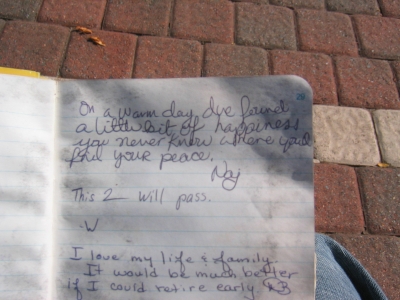 On a warm day, I've found
a little bit of happiness
you never know where you'll
find your peace.
Naj
This 2 will pass.
-W
I love my life & family.
It would be much better
if I could retire early